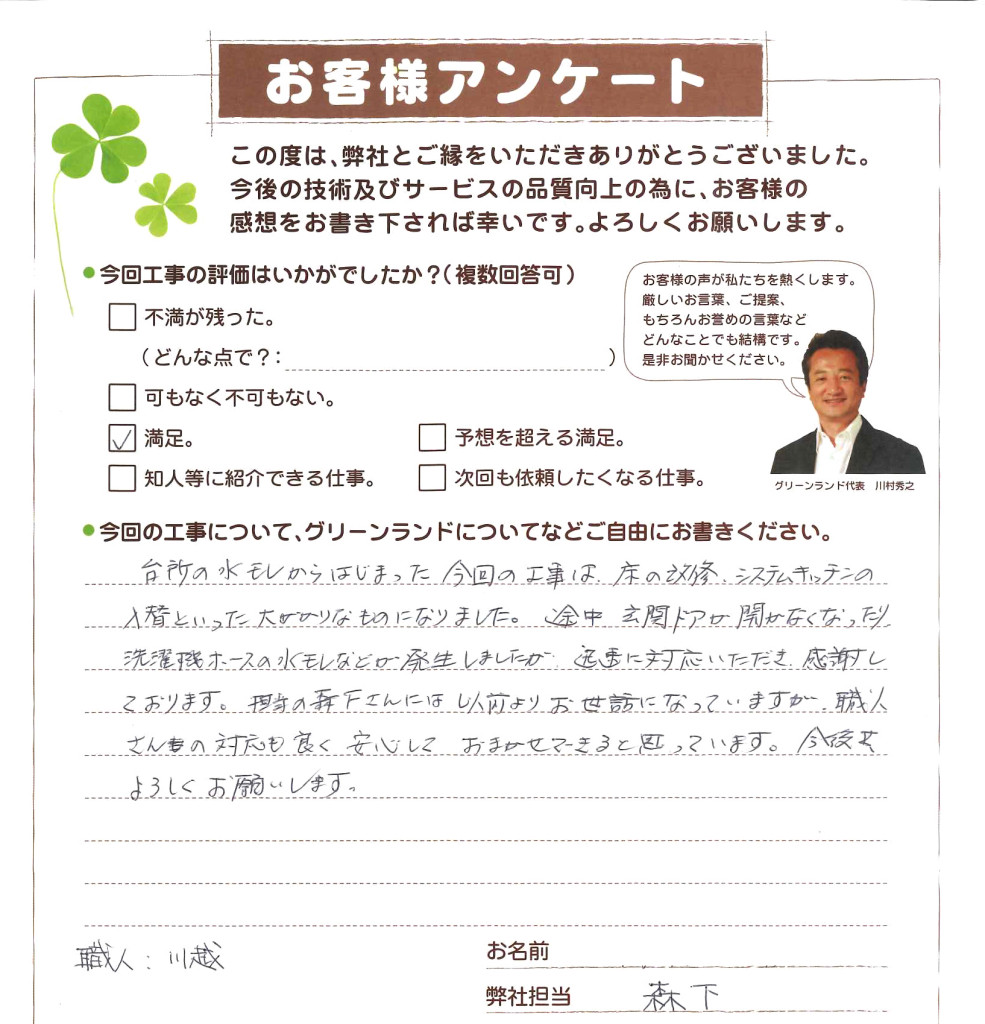 お客様アンケート
この度は、弊社とご縁をいただきありがとうございました。
今後の技術及びサービスの品質向上の為に、お客様の
感想をお書き下されば幸いです。よろしくお願いします。
●今回工事の評価はいかがでしたか？（複数回答可）
不満が残った。
（どんな点で？：　）
可もなく不可もない。
満足。
予想を超える満足。
知人等に紹介できる仕事。
次回も依頼したくなる仕事。
お客様の声が私たちを熱くします。
厳しいお言葉、ご提案、
もちろんお誉めの言葉など
どんなことでも結構です。
是非お聞かせください。
グリーンランド代表　川村秀之
●今回の工事について、グリーンランドについてなどご自由にお書きください。
台所の水モレからはじまった今回の工事は、床の改修、システムキッチンの
入替といった大がかりなものになりました。途中 玄関ドアが開かなくなったり、
洗濯機ホースの水モレなどが発生しましたが 迅速に対応いただき、感謝し
ております。担当の森下さんには以前よりお世話になっていますが、職人
さん達の対応も良く 安心して おまかせできると思っています。今後共
よろしくお願いします。
職人：川越
お名前
弊社担当　森下